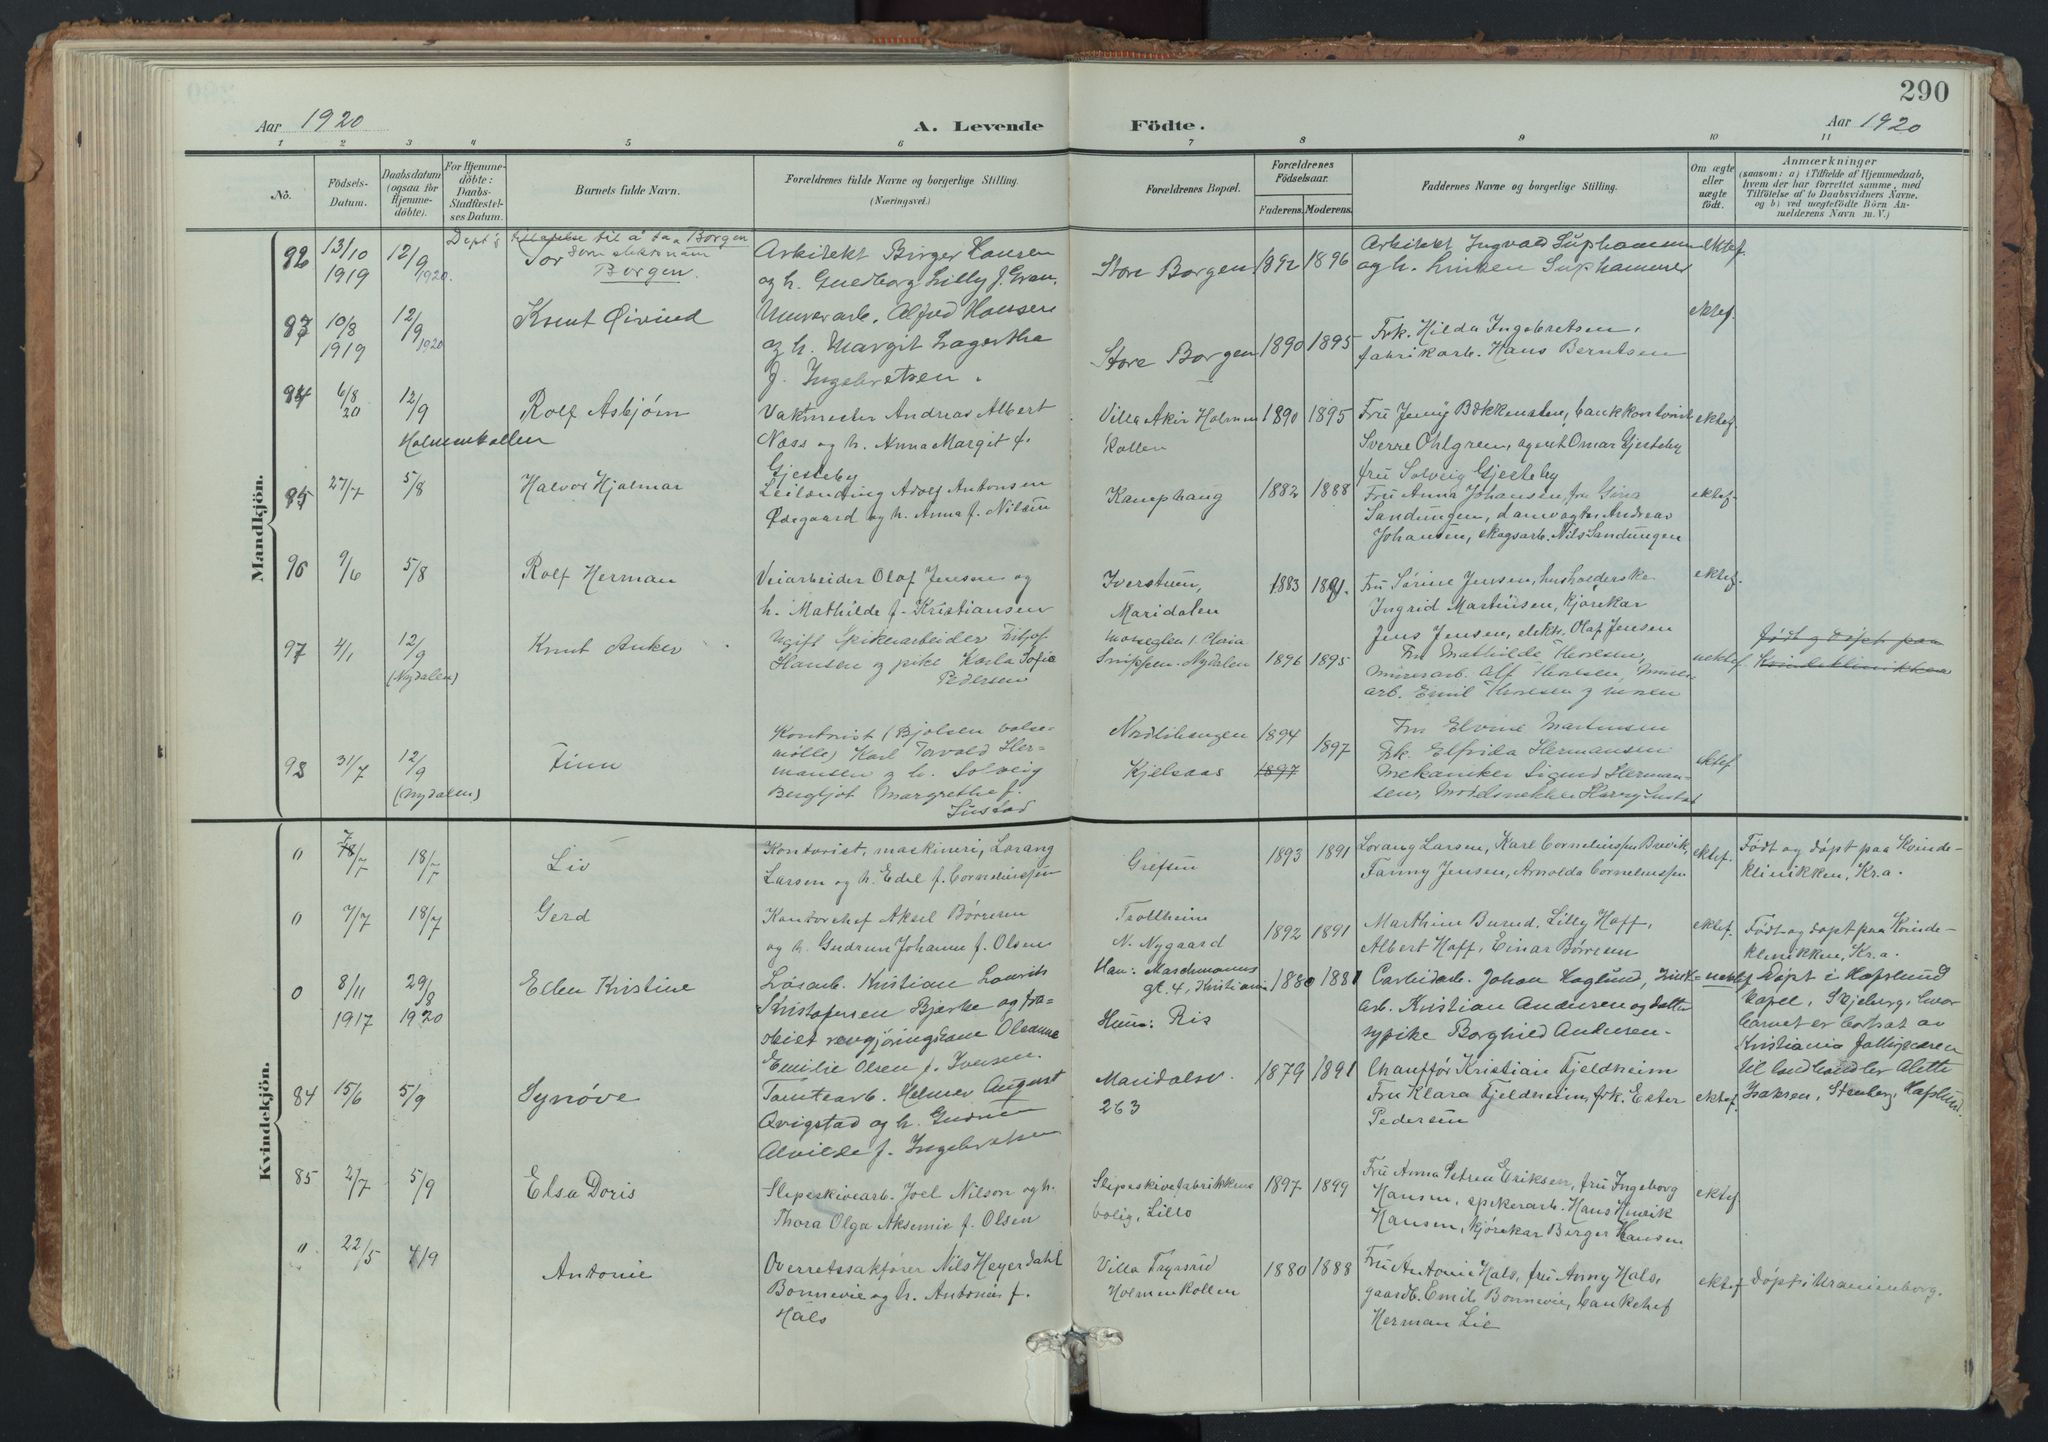 290
Aar 1920
A. Levende
Födte.
Aar 1920
1 2 3 4 5 6 7 8 9 10 11
No.
Födsels-
Datum.
Daabsdatum
(ogsaa for
Hjemme-
döbte).
For Hjemme-
döbte:
Daabs-
Stadfæstel-
ses Datum.
Barnets fulde Navn.
Forældrenes fulde Navne og borgerlige Stilling.
(Næringsvei.)
Forældrenes Bopæl.
Forældrenes
Födselsaar.
Faderens. Moderens.
Faddernes Navne og borgerlige Stilling.
Om ægte
eller
uægte
født.
Anmærkninger
(saasom: a) i Tilfælde af Hjemmedaab,
hvem der har forrettet samme, med
Tilføielse af to Daabsvidners Navne,
og b) ved uægtefödte Börn An-
melderens Navn m. V.)
Mandkjön.
til å taa Borgen
som slektsnavn
92 13/10 1919
12/9 1920.
Tor
Borgen.
Arkitekt Birger Hansen
og h. Guedborg Lilly f. Evan.
Store Borgen
1892 1896
Arkitekt Ingvald Suphammer
og h. Suphammer
ektef.
93 10/8 1919
12/9 1920
Knut Øivind
Murerarb. Alfred Hansen
og h. Margit Lagertha
f. Ingebretsen.
Store Borgen
1890 1895
Frk. Hilda Ingebretsen,
fabrikarb. Hans Berntsen
ektef.
94 6/8 20
12/9
Holmenkollen
Rolf Asbjørn
Vaktmester Andreas Albert
Næss og h. Anna Margit f.
Gjesteby
Villa Akir Holmen
kollen
1890 1895
Fru Jenny Bækkensten, bankkontorist
Sverre Ohlgren, agent Omar Gjesteby
fru Solveig Gjesteby
ektef.
95 27/7
5/8
Halvor Hjalmar
Leilending Adolf Antonsen
Ødegaard og h. Anna f. Nilsen
Kamphaug
1882 1888
Fru Anna Johansen, fru Gina
Sandungen, damvogter Andreas
Johansen, skogsarb. Nils Sandungen
ektef.
96 9/6
5/8
Rolf Herman
Veiarbeider Olaf Jensen og
h. Mathilde f. Kristiansen
Iverstuen,
Maridalen
1883 1881.
Fru Sørine Jensen, husholderske
Ingrid Martinsen, kjørekar
Jens Jensen, elektr. Olaf Jensen
ektef.
97 4/1
12/9
(Nydalen)
Knut Anker
Ugift Spikerarbeider Fritjof
Hansen og pike Karla Sofie
Pedersen
Snippen. Nydalen
1896 1895
Fru Mathilde Thoresen,
murerarb. Alf Thoresen, murer-
arb. Emil Thoresen og moren
uektef.
født og døpt paa
Kvindeklinikken
98 31/7
12/9
(Nydalen)
Finn
Kontorist (Bjølsen valse-
mølle) Karl Torvald Her-
mansen og h. Solveig
Bergljot Margrethe f.
Sustad
Nordlihaugen
Kjelsaas
1894 1897
1897
Fru Elvine Martinsen
Frk. Elfrida Hermansen
Mekaniker Sigurd Herman-
sen, Modelsnekker Harry Sustad
ektef.
Kvindekjön.
0 7/7
18/7
Liv
Kontorist, maskineri, Lorang
Larsen og h. Edel f. Corneliussen
Grefsen
1893 1891
Lorang Larsen, Karl Corneliussen Brevik,
Fanny Jensen, Arnolda Corneliussen
ektef.
Født og døpt paa Kvinde-
klinikken, Kr.a.
0 7/7
18/7
Gerd
Kontorchef Aksel Børresen
og h. Gudrun Johanne f. Olsen
Trollheim
N. Nygaard
1892 1891
Marthin Burud, Lilly Hoff,
Albert Hoff, Einar Børresen
ektef.
Født og døpt paa Kvinde-
klinikken, Kr.a.
0 8/11 1917
29/8 1920
Ellen Kristine
Løsarb. Kristian Laurits
Kristofersen Bjerke og fra-
skilt rengjøringskone Oleanna
Emilie Olsen f. Iversen.
Han: Maschmanns
gt. 4, Kristiania
Hun: Ris
1880 1881
Carbidarb. Johan Haglund,
arb. Kristian Andersen og datter
sypike Borghild Andersen.
uektef
Døpt i Hafslund
kapel, Skjeberg, hvor
barnet er bortsat av
Kristiania Fattigvæsen
til landhandler Alette
Isaksen, Stenberg, Hafslund.
84 15/6
5/9
Synøve
Tomtearb. Helmer August
Qvigstad og h. Gudrun
Alvilde f. Ingebretsen
Maridalsv.
263
1879 1891
Chauffør Kristian Fjeldheim
Fru Klara Fjeldheim, frk. Ester
Pedersen
ektef.
85 2/7
5/9
Elsa Doris
Slipeskivearb. Joel Nilson og h.
Thora Olga Aksemie f. Olsen
Slipeskivefabrikkens
bolig, Lillo
1897 1899
Fru Anna Petrea Eriksen, fru Ingeborg
Hansen, spikerarb. Hans Henrik
Hansen, kjørekar Birger Hansen
ektef.
0 22/5
4/9
Antonie
Overretssakfører Nils Heyerdahl
Bonnevie og h. Antonie f.
Hals
Villa Fryrsrud
Holmenkollen
1880 1888
Fru Antonie Hals, fru Anny Hals,
gaardb. Emil Bonnevie, bankchef
Herman Lie
ektef.
Døpt i Uranienborg.